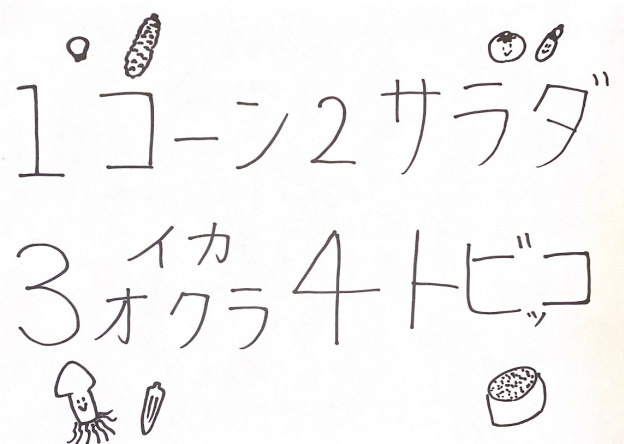 1コーン2サラダ
3イカオクラ4トビッコ